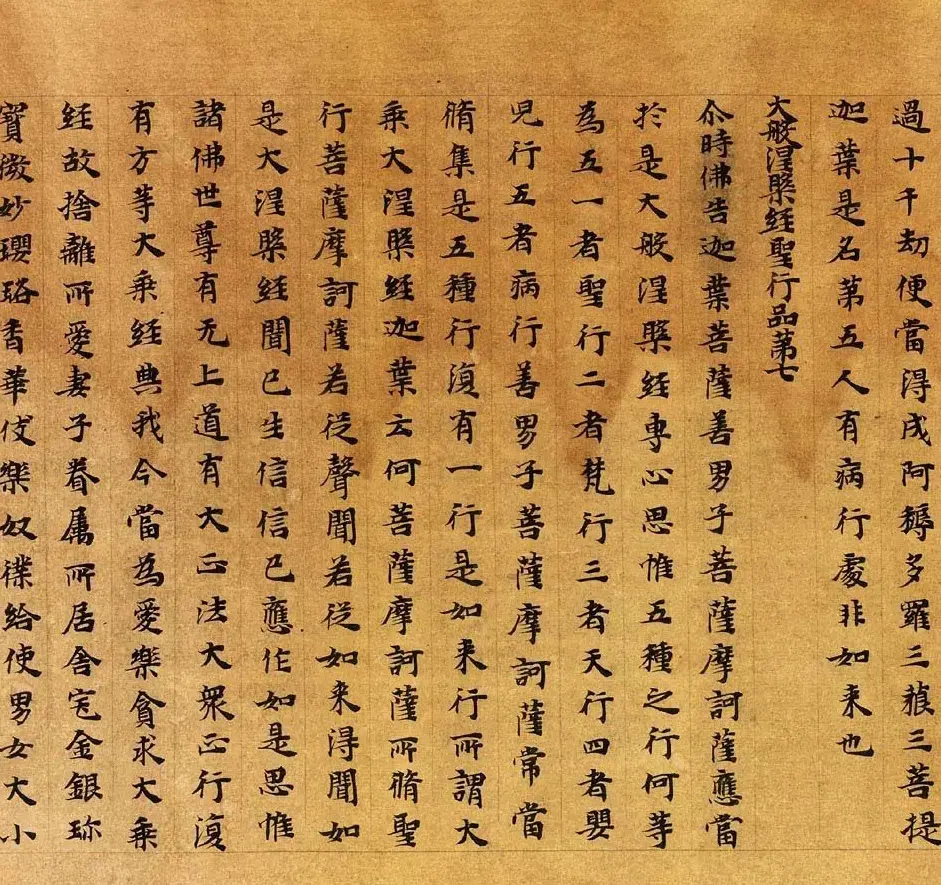 過十千劫便當得成阿耨多羅三藐三菩提
迦葉是名第五人有病行處非如来也
大般涅槃経聖行品第七
尒時佛告迦葉菩薩善男子菩薩摩訶薩應當
扵是大般涅槃経專心思惟五種之行何等
為五一者聖行二者梵行三者天行四者嬰
児行五者病行善男子菩薩摩訶薩常當
脩集是五種行復有一行是如来行所謂大
乗大涅槃経迦葉云何菩薩摩訶薩所脩聖
行菩薩摩訶薩若従聲聞若従如来得聞如
是大涅槃経聞已生信信已應作如是思惟
諸佛世尊有无上道有大正法大衆正行復
有方等大乗経典我今當為愛樂貪求大乗
経故捨離所愛妻子眷属所居舍宅金銀珎
寳微妙瓔珞香華伎樂奴僕給使男女大小